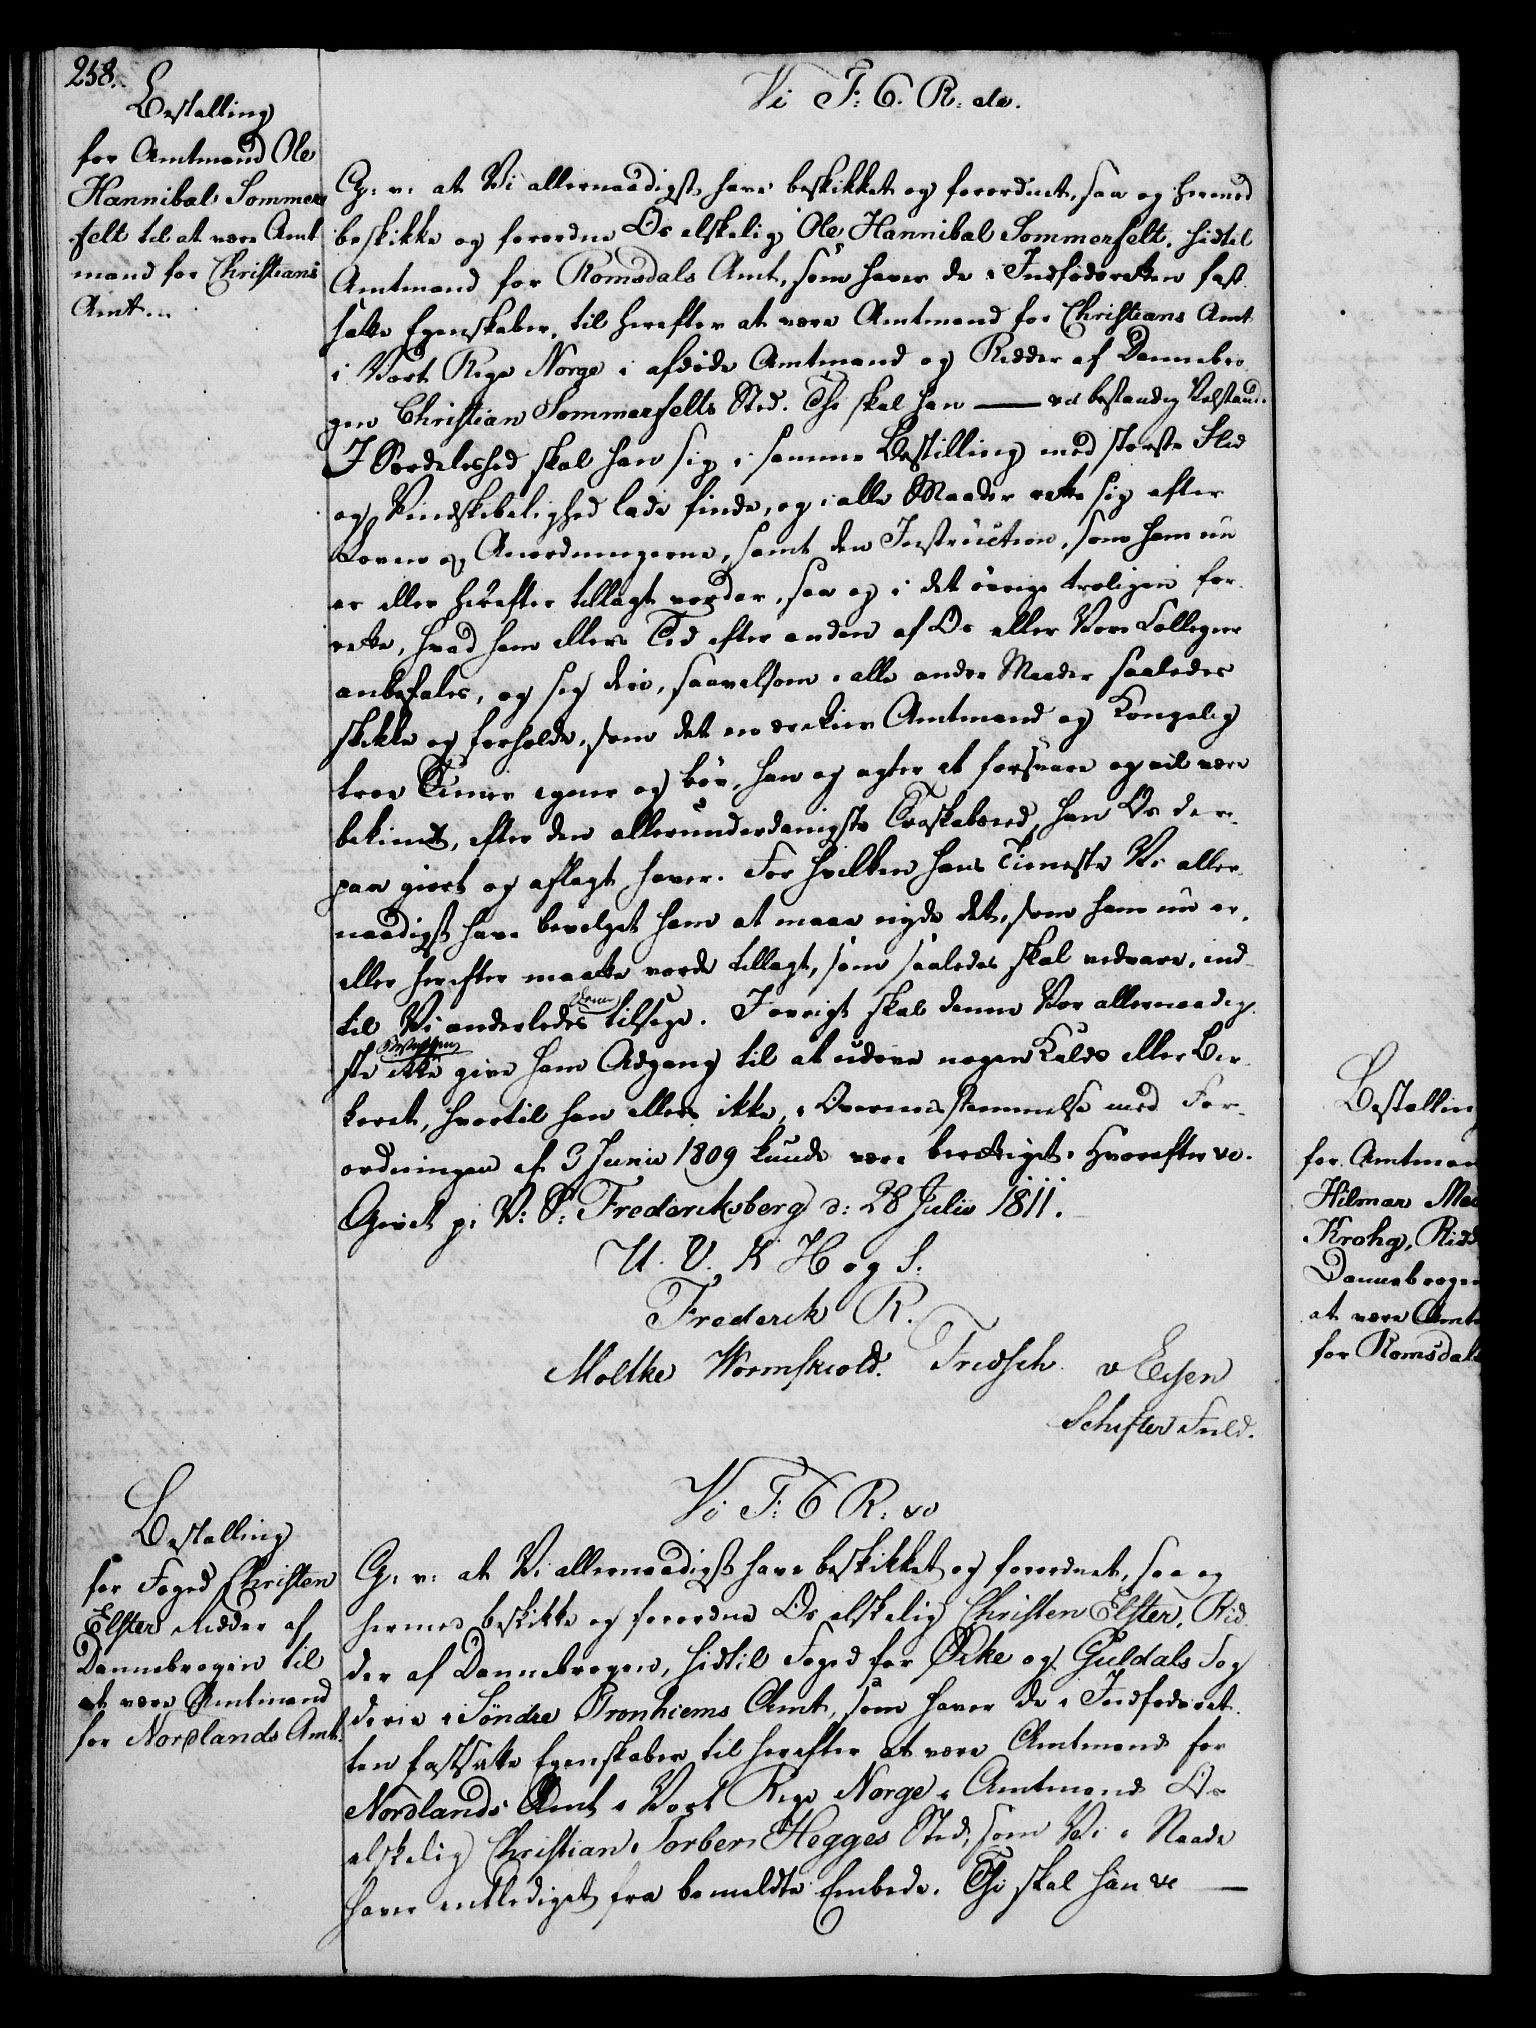 258.
Bestalling
for Amtmand Ole
Hannibal Sommer
felt til at være Amt
mand for Christians
Amt...
Vi F: 6. R: etc.
G: v: at Vi allernaadigst have beskikket og forordnet, saa og hermed
beskikke og forordne Os elskelig Ole Hannibal Sommerfelt, hidtil
Amtmand for Romsdals Amt, som haver de i Indfødsretten fast
satte Egenskaber, til herefter at være Amtmand for Christians Amt
i Vort Rige Norge i afdøde Amtmand og Ridder af Dannebro
gen Christian Sommerfelts Sted. Thi skal han — ved bestandig Velstand.
I Særdeleshed skal han sig i samme Bestilling med største Flid
og Vindskibelighed lade finde, og i alle Maader rette sig efter
Loven og Anordningerne, samt den Instruction, som ham nu
er eller herefter tillagt vorder, saa og i det øvrige troligen for
rette, hvad ham ellers Tid efter anden af Os eller Vore Collegier
anbefales, og sig deri, saavelsom i alle andre Maader saaledes
skikke og forholde, som det en ærekier Amtmand og Kongelig
troe Tiener egner og bør, han og agter at forsvare og vil være
bekiendt, efter den allerunderdanigste Troskabseed, han Os der
paa giort og aflagt haver. For hvilken hans Tieneste Vi aller
naadigst have bevilget ham at maae nyde det, som ham nu er,
eller herefter maatte vorde tillagt, som saaledes skal vedvare, ind
til Vi anderledes derom tilsige. Iøvrigt skal denne Vor allernaadig
ste Bestalling ikke give ham Adgang til at udøve nogen Kalds eller Be
ret, hvortil han ellers ikke, i Overeensstemmelse med For
ordningen af 3 Junii 1809 kunde være berettiget. Hvorefter etc.
Givet p: V: S: Frederiksberg d: 28 Julii 1811.
U. V. K H og S:
Frederik R.
Moltke Wormskiold. Fridsch v Essen
Schifter Fuld.
Bestalling
for Foged Christen
Elster Ridder af
Dannebrogen til
at være Amtmand
for Nordlands Amt.
Vi F: 6 R: etc
G: v: at Vi allernaadigst have beskikket og forordnet, saa og
hermed beskikke og forordne Os elskelig Christen Elster, Rid
der af Dannebrogen, hidtil Foged for Orke og Guldals Fog
derie i Søndre Tronhiems Amt, som haver de i Indfødsret
ten fastsatte Egenskaber til herefter at være Amtmand for
Nordlands Amt i Vort Rige Norge i Amtmand Os
elskelig Christian Torber Hegges Sted, som Vi i Naade
have entlediget fra bemeldte Embede. Thi skal han etc —
Bestallin
for Amtman
Hilmar Me
Krohg, Ridd
Dannebroge
at være Amt
for Romsdals